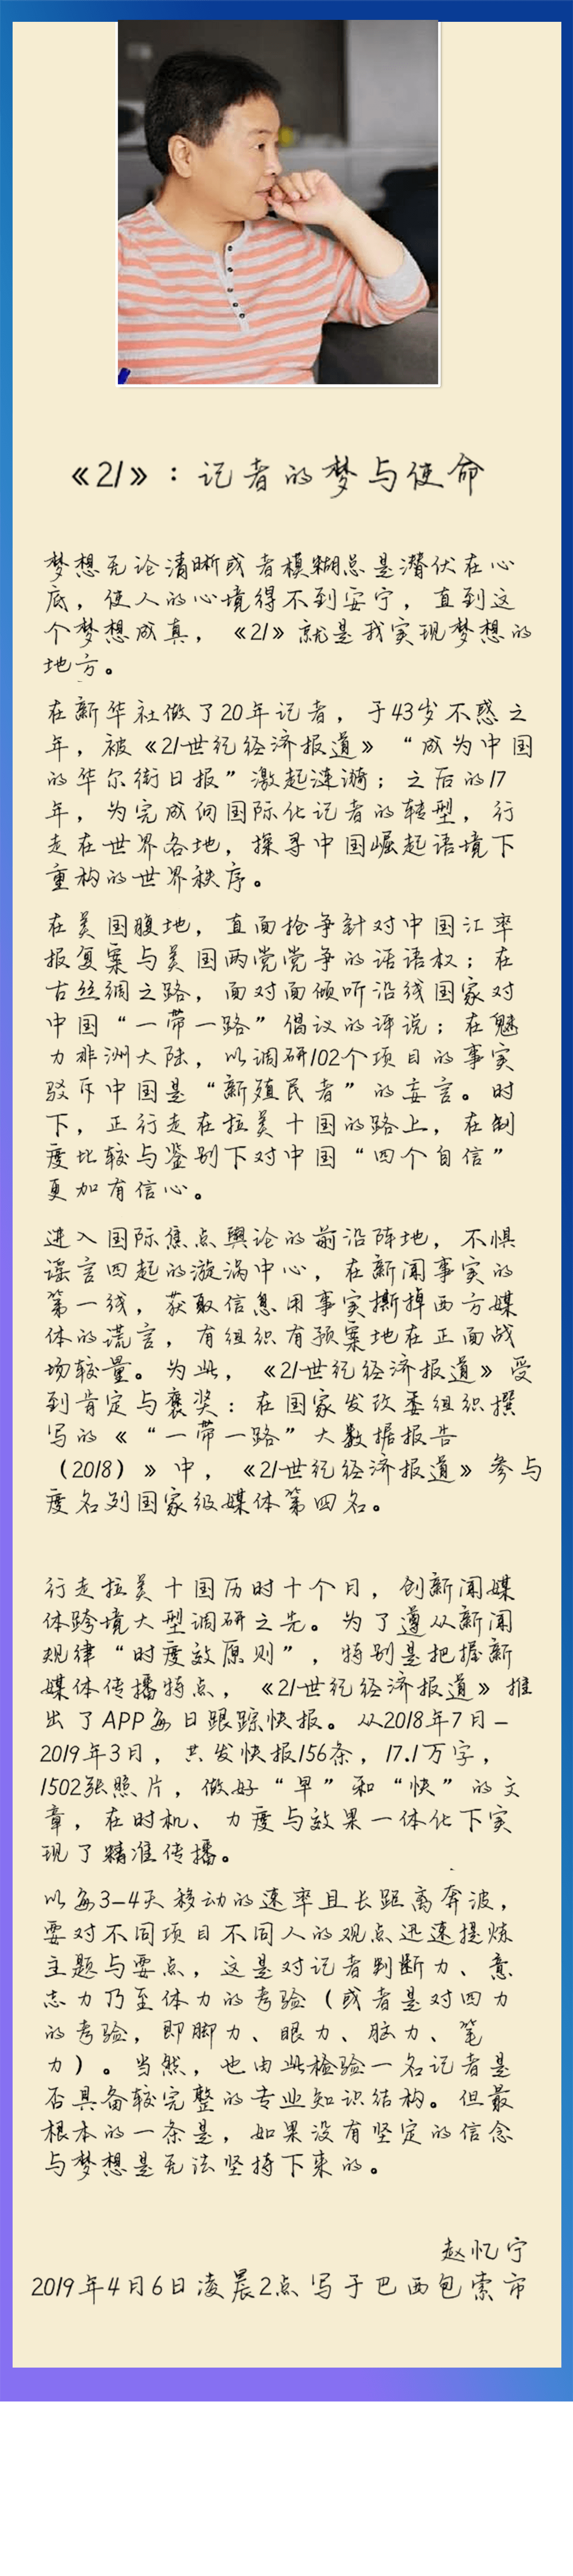 《21》：记者的梦与使命
梦想无论清晰或者模糊总是潜伏在心
底，使人的心境得不到安宁，直到这
个梦想成真，《21》就是我实现梦想的
地方。
在新华社做了20年记者，于43岁不惑之
年，被《21世纪经济报道》“成为中国
的华尔街日报”激起涟漪；之后的17
年，为完成向国际化记者的转型，行
走在世界各地，探寻中国崛起语境下
重构的世界秩序。
在美国腹地，直面抢争针对中国汇率
报复案与美国两党党争的话语权；在
古丝绸之路，面对面倾听沿线国家对
中国“一带一路”倡议的评说；在魅
力非洲大陆，以调研102个项目的事实
驳斥中国是“新殖民者”的妄言。时
下，正行走在拉美十国的路上，在制
度比较与鉴别下对中国“四个自信”
更加有信心。
进入国际焦点舆论的前沿阵地，不惧
谣言四起的漩涡中心，在新闻事实的
第一线，获取信息用事实撕掉西方媒
体的谎言，有组织有预案地在正面战
场较量。为此，《21世纪经济报道》受
到肯定与褒奖：在国家发改委组织撰
写的《“一带一路”大数据报告
（2018）》中，《21世纪经济报道》参与
度名列国家级媒体第四名。
行走拉美十国历时十个月，创新闻媒
体跨境大型调研之先。为了遵从新闻
规律“时度效原则”，特别是把握新
媒体传播特点，《21世纪经济报道》推
出了APP每日跟踪快报。从2018年7月-
2019年3月，共发快报156条，17.1万字，
1502张照片，做好“早”和“快”的文
章，在时机、力度与效果一体化下实
现了精准传播。
以每3-4天移动的速率且长距离奔波，
要对不同项目不同人的观点迅速提炼
主题与要点，这是对记者判断力、意
志力乃至体力的考验（或者是对四力
的考验，即脚力、眼力、脑力、笔
力）。当然，也由此检验一名记者是
否具备较完整的专业知识结构。但最
根本的一条是，如果没有坚定的信念
与梦想是无法坚持下来的。
赵忆宁
2019年4月6日凌晨2点写于巴西包索市